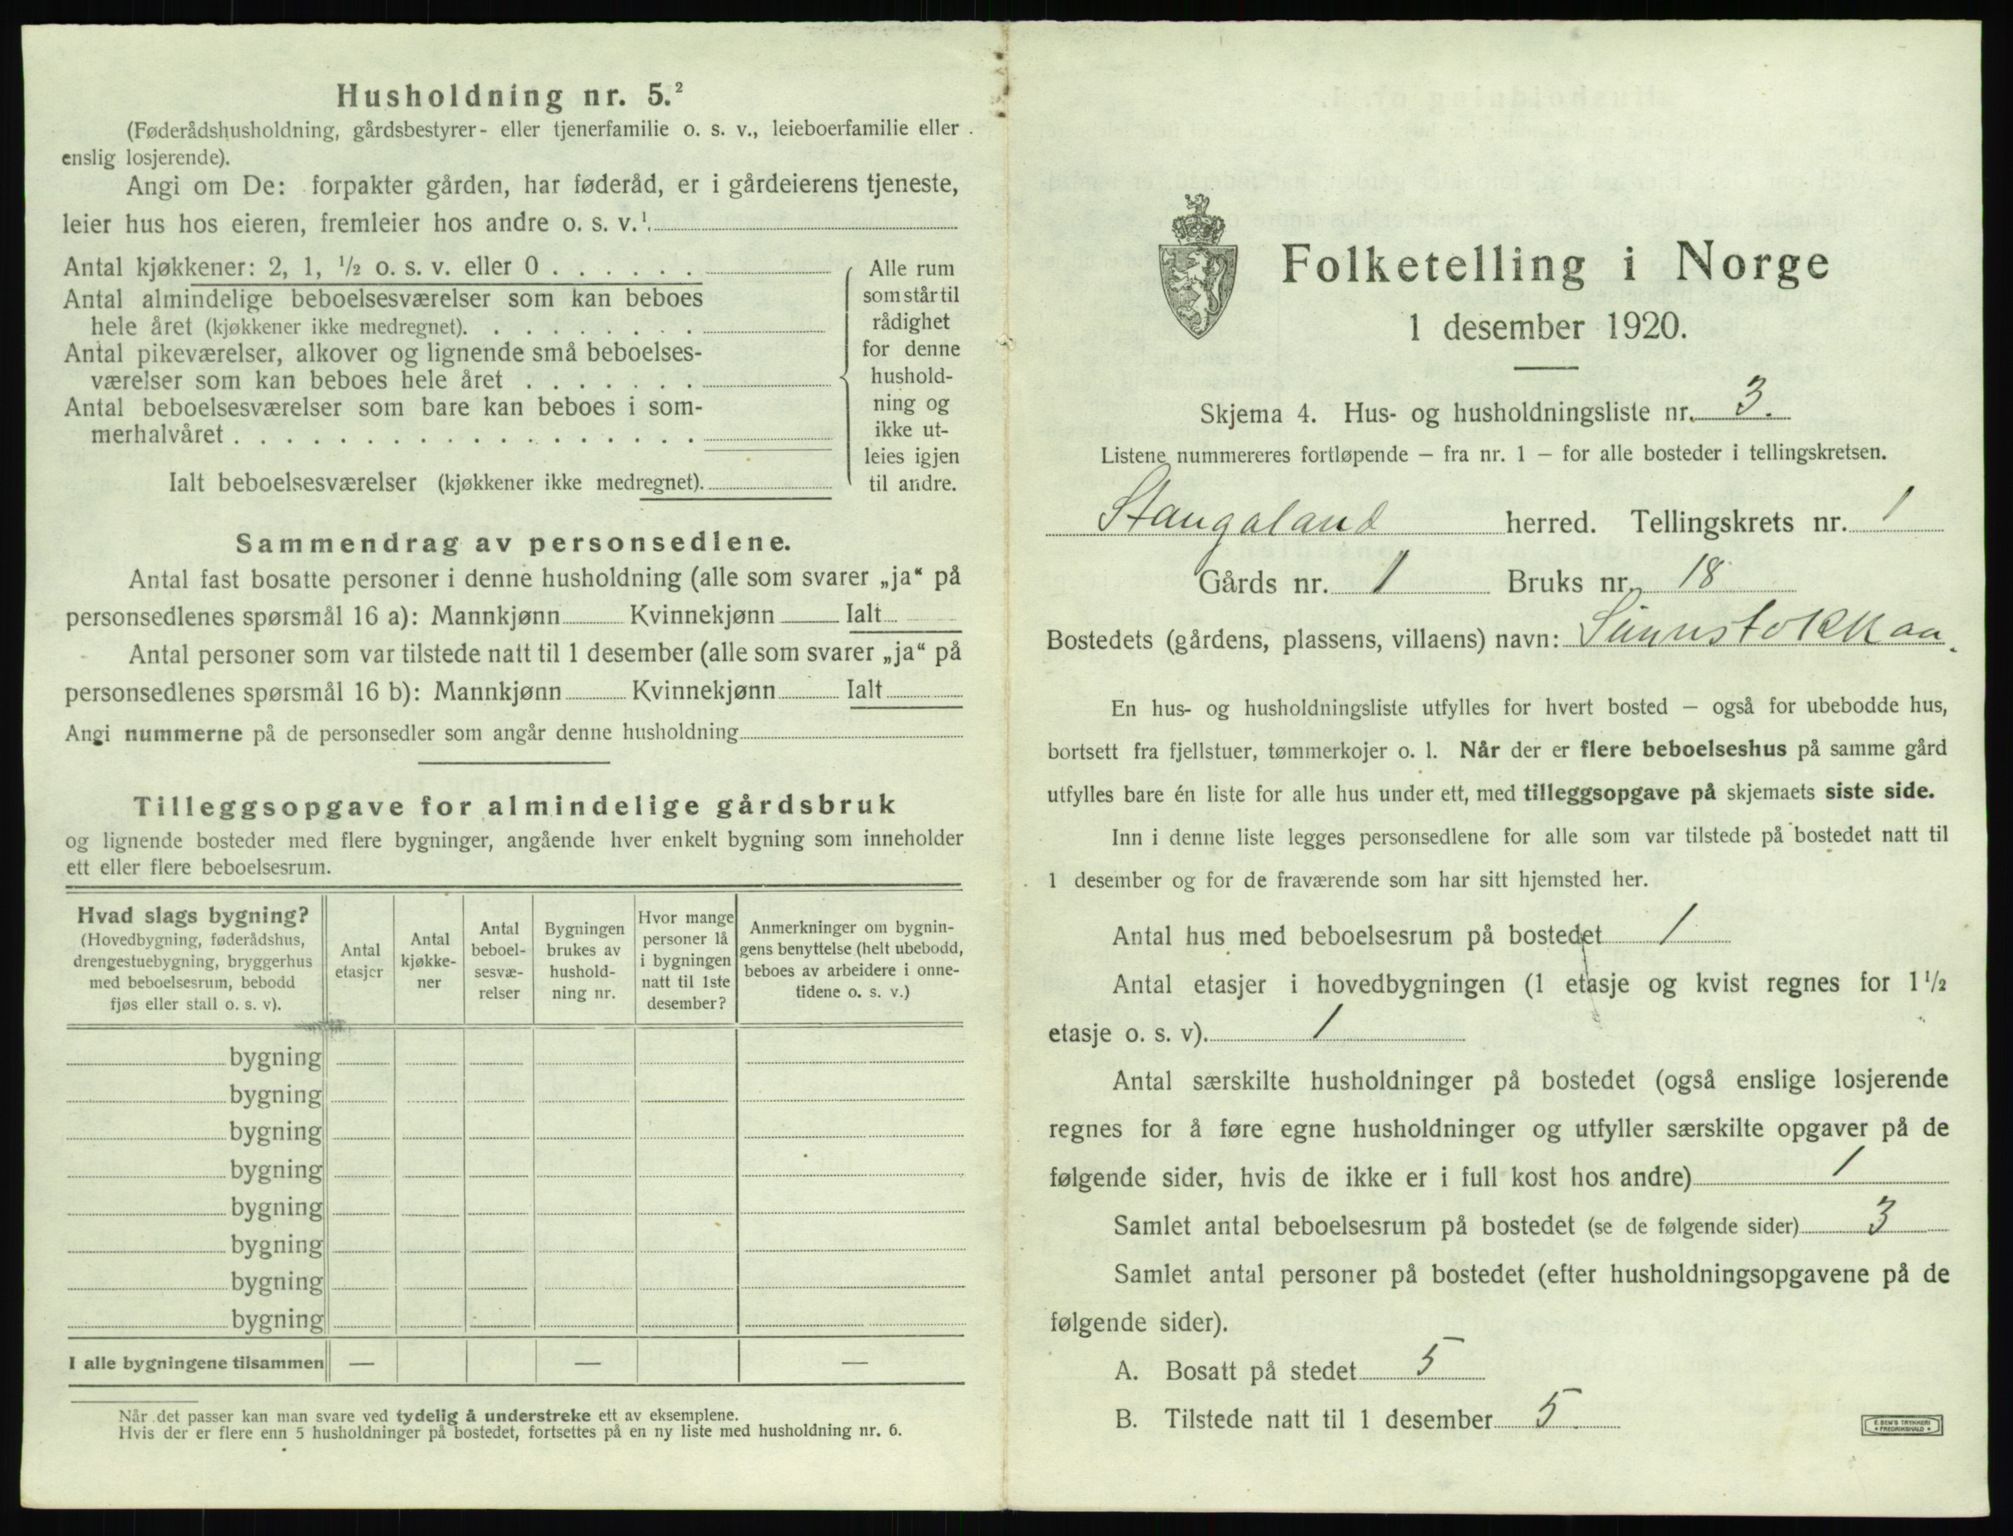 Husholdning nr. 5.²
(Føderådshusholdning, gårdsbestyrer- eller tjenerfamilie o. s. v., leieboerfamilie eller
enslig losjerende).
Angi om De: forpakter gården, har føderåd, er i gårdeierens tjeneste,
leier hus hos eieren, fremleier hos andre o. s. v.¹
Antal kjøkkener: 2, 1, ½ o. s. v. eller 0 . . . . . .
Antal almindelige beboelsesværelser som kan beboes
hele året (kjøkkener ikke medregnet). . . . . . . . .
Antal pikeværelser, alkover og lignende små beboelses-
værelser som kan beboes hele året . . . . . . .
Antal beboelsesværelser som bare kan beboes i som-
merhalvåret . . . . . . . . . . . . . . . . . .
Ialt beboelsesværelser (kjøkkener ikke medregnet).
Alle rum
som står til
rådighet
for denne
hushold-
ning og
ikke ut-
leies igjen
til andre.
Sammendrag av personsedlene.
Antal fast bosatte personer i denne husholdning (alle som svarer „ja“ på
personsedlenes spørsmål 16 a): Mannkjønn Kvinnekjønn Ialt
Antal personer som var tilstede natt til 1 desember (alle som svarer „ja“ på
personsedlenes spørsmål 16 b): Mannkjønn Kvinnekjønn Ialt
Angi nummerne på de personsedler som angår denne husholdning
Tilleggsopgave for almindelige gårdsbruk
og lignende bosteder med flere bygninger, angående hver enkelt bygning som inneholder
ett eller flere beboelsesrum.
Hvad slags bygning?
(Hovedbygning, føderådshus,
drengestuebygning, bryggerhus
med beboelsesrum, bebodd
fjøs eller stall o. s. v).
Antal
etasjer
Antal
kjøkke-
ner
Antal
beboel-
sesvæ-
relser
Bygningen
brukes av
hushold-
ning nr.
Hvor mange
personer lå
i bygningen
natt til 1ste
desember?
Anmerkninger om bygnin-
gens benyttelse (helt ubebodd,
beboes av arbeidere i onne-
tidene o. s. v.)
bygning
bygning
bygning
bygning
bygning
bygning
bygning
bygning
I alle bygningene tilsammen — — —
Når det passer kan man svare ved tydelig å understreke ett av eksemplene.
Hvis der er flere enn 5 husholdninger på bostedet, fortsettes på en ny liste med husholdning nr. 6.
Folketelling i Norge
1 desember 1920.
Skjema 4. Hus- og husholdningsliste nr. 3.
Listene nummereres fortløpende — fra nr. 1 — for alle bosteder i tellingskretsen.
Stangaland herred. Tellingskrets nr. 1
Gårds nr. 1 Bruks nr. 18
Bostedets (gårdens, plassens, villaens) navn:
En hus- og husholdningsliste utfylles for hvert bosted — også for ubebodde hus,
bortsett fra fjellstuer, tømmerkojer o. l. Når der er flere beboelseshus på samme gård
utfylles bare én liste for alle hus under ett, med tilleggsopgave på skjemaets siste side.
Inn i denne liste legges personsedlene for alle som var tilstede på bostedet natt til
1 desember og for de fraværende som har sitt hjemsted her.
Antal hus med beboelsesrum på bostedet 1
Antal etasjer i hovedbygningen (1 etasje og kvist regnes for 1½
etasje o. s. v). 1
Antal særskilte husholdninger på bostedet (også enslige losjerende
regnes for å føre egne husholdninger og utfyller særskilte opgaver på de
følgende sider, hvis de ikke er i full kost hos andre) 1
Samlet antal beboelsesrum på bostedet (se de følgende sider) 3
Samlet antal personer på bostedet (efter husholdningsopgavene på de
følgende sider).
A. Bosatt på stedet 5
B. Tilstede natt til 1 desember 5
E. SEM'S TRYKKERI
FREDRIKSHALD